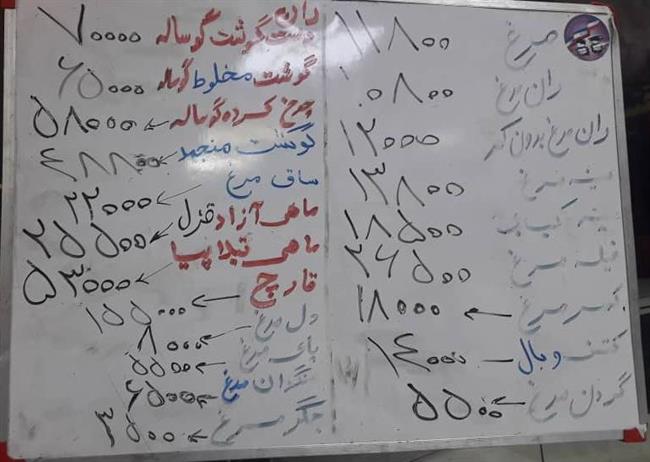 مرغ ۱۱۸۰۰
ران مرغ ۱۰۸۰۰
ران مرغ بدون کمر ۱۲۰۰۰
سینه مرغ ۱۳۸۰۰
سینه کبابی ۱۸۵۰۰
فیله مرغ ۲۶۵۰۰
کمر مرغ ← ۱۸۰۰۰
کتف و بال ۱۴۰۰۰
گردن مرغ ← ۵۵۰۰
ران
دست گوشت گوساله ۷۰۰۰۰
گوشت مخلوط گوساله ۶۵۰۰۰
چرخ کرده گوساله ← ۵۸۰۰۰
گوشت منجمد ۴۸۸۰۰
ساق مرغ ← ۲۲۰۰۰
ماهی آزاد قزل ← ۲۵۵۰۰
ماهی تیلاپیا ← ۵۳۰۰۰
قارچ ← ۱۵۵۰۰
دل مرغ ← ۸۰۰۰
پای مرغ ← ۵۵۰۰
سنگدان مرغ ۶۵۰۰
جگر مرغ ← ۳۵۰۰